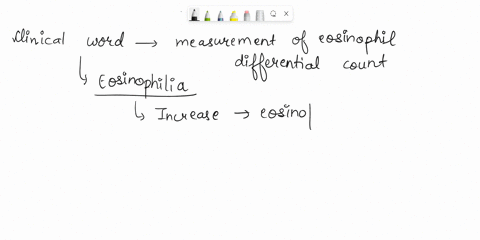 Clinical word → measurement of eosinophil
differential count
↳ Eosinophilia
↳ Increase → eosino